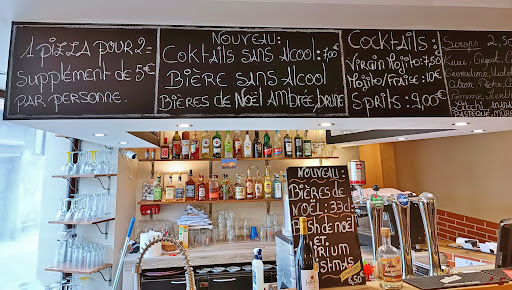 1 PIZZA POUR 2 =
SUPPLÉMENT DE 5€
PAR PERSONNE.
NOUVEAU:
COKTAILS SANS ALCOOL: 7,00€
BIÈRE SANS ALCOOL
BIÈRES DE NOËL AMBRÉE, BRUNE
COCKTAILS:
VIRGIN MOJITO: 7,50€
MOJITO/FRAISE: 10€
SPRITS: 9,00€
SIROPS 2,50
KIWI, ORGEAT,
GRENADINE,
CITRON,
PASTÈQUE, MÛRE
NOUVEAU:
BIÈRES DE
NOËL: 33cl
DE NOËL
ET.
6,50€